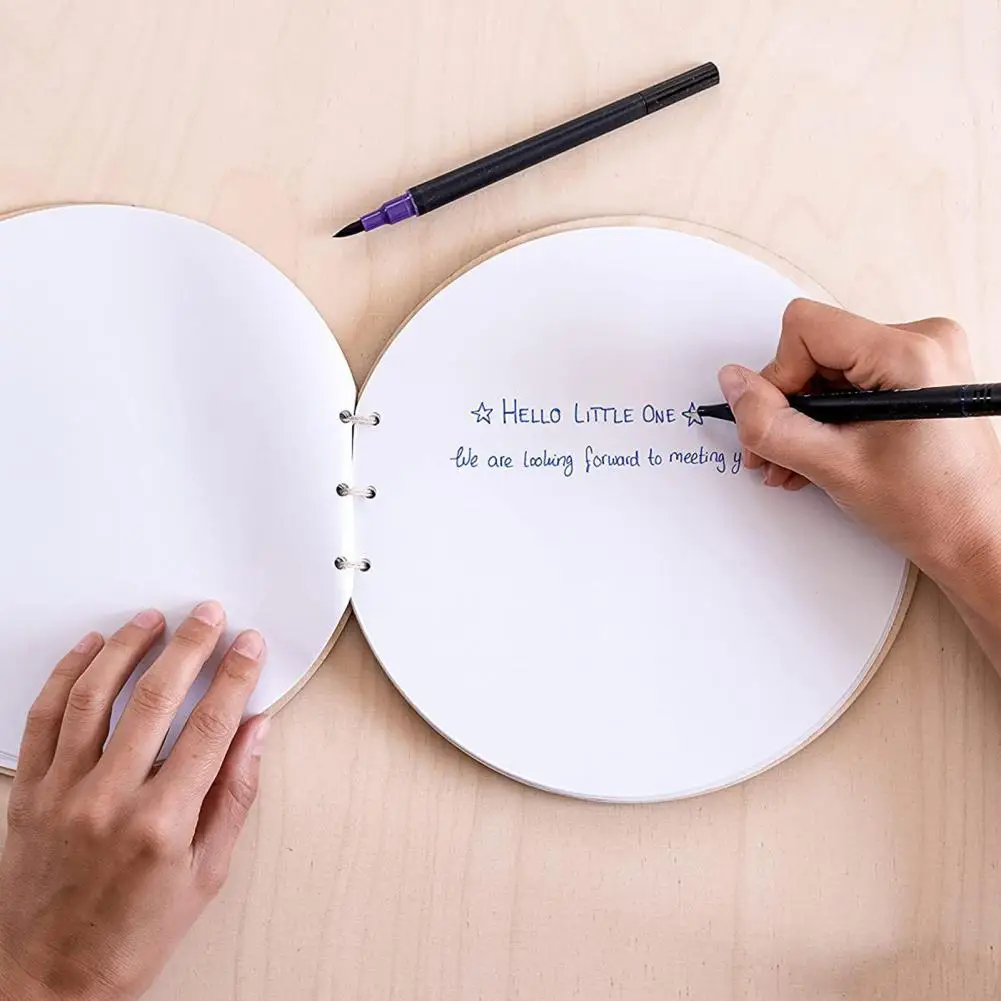 ☆ HELLO LITTLE ONE ☆
We are looking forward to meeting